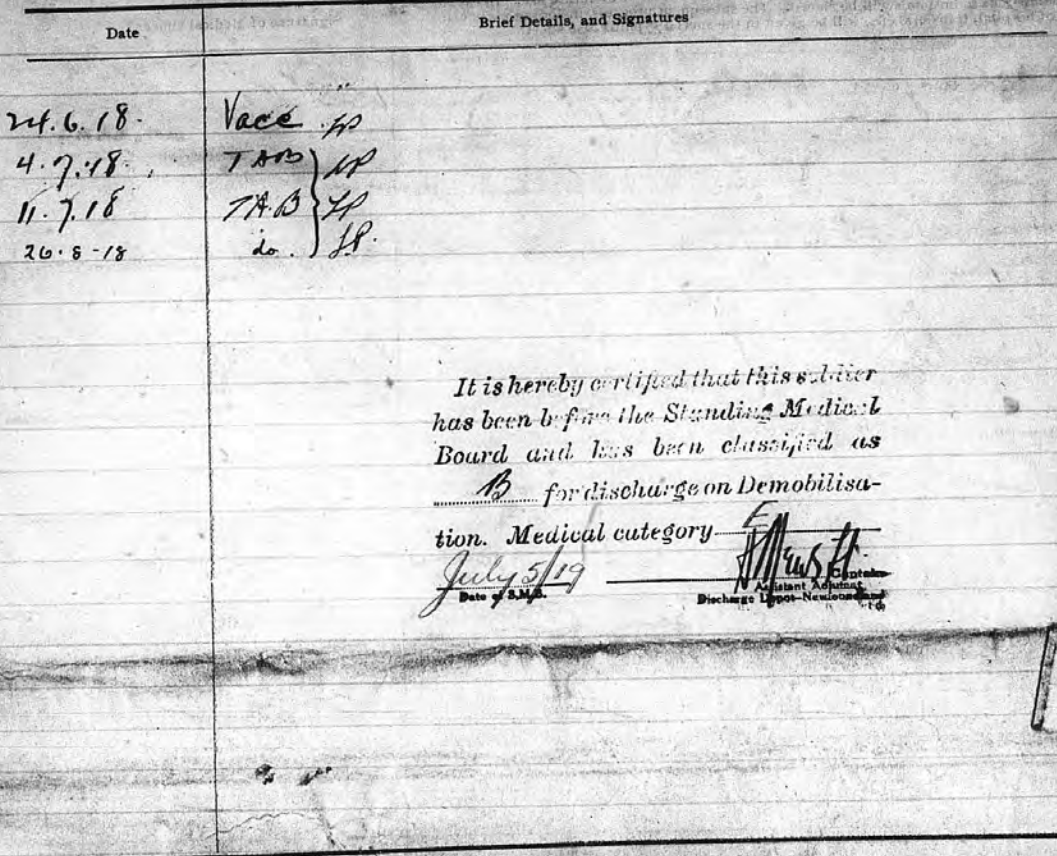 Date Brief Details, and Signatures
24.6.18. Vacc
4.7.18. TAB
11.7.18 TA.B
26.8-18 do.
It is hereby certified that this soldier
has been before the Standing Medical
Board and has been classified as
B for discharge on Demobilisa-
tion. Medical category E
July 5/19
Date of S.M.B. Assistant Adjutant
Discharge Depot—Newfoundland